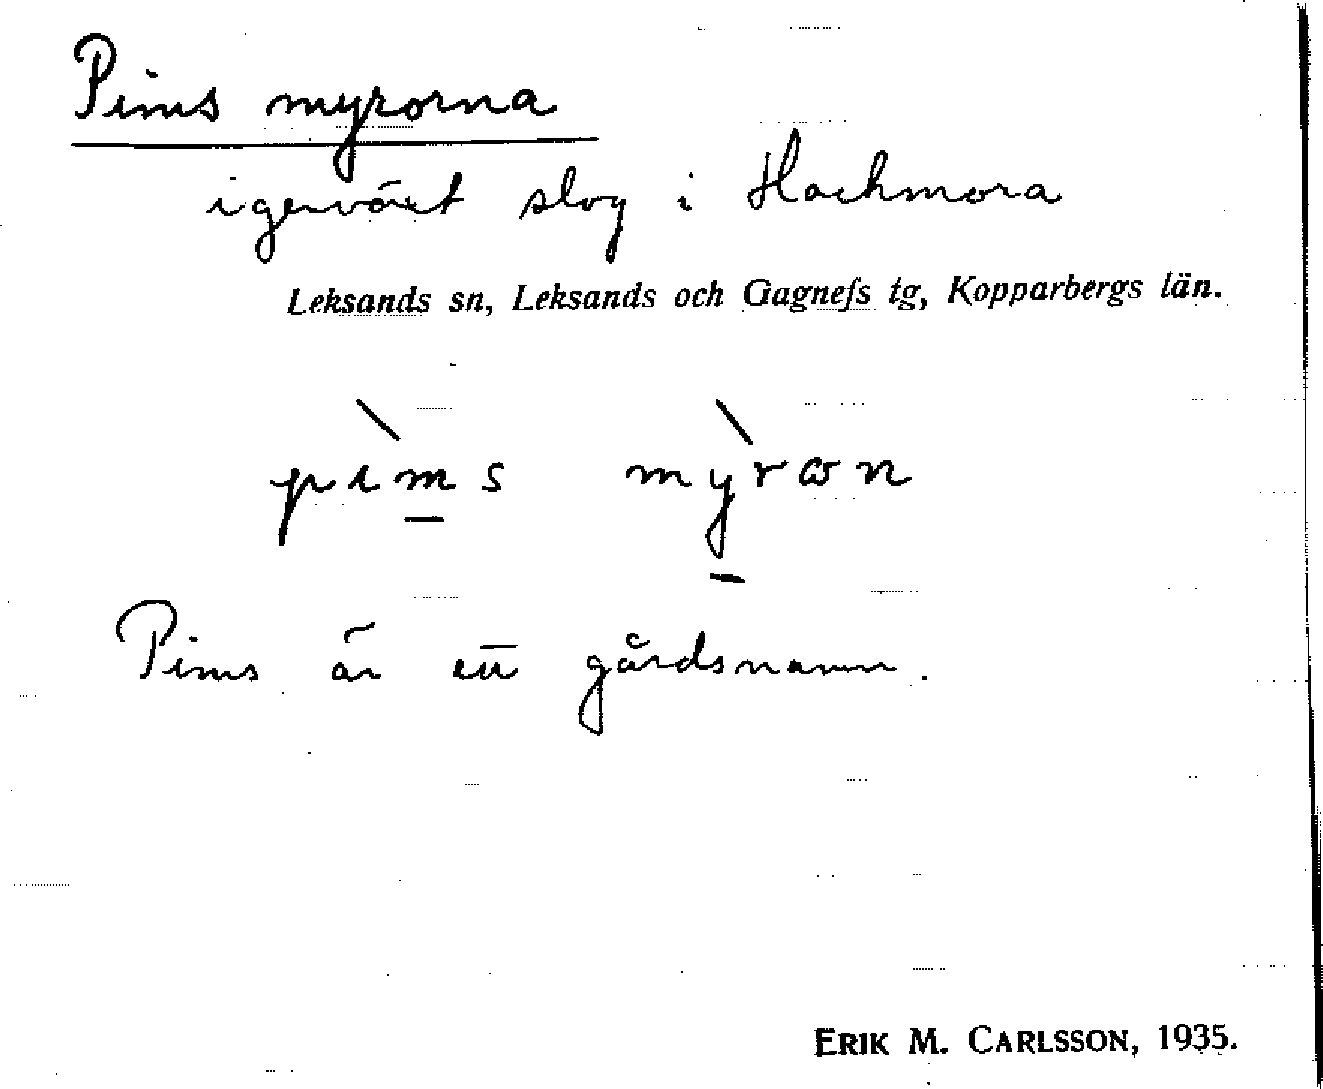 Pims myrorna
igenväxt slog i Hackmora
Leksands sn, Leksands och Gagnefs tg, Kopparbergs län.
pims myrɷn
Pims är ett gårdsnamn.
ERIK M. CARLSSON, 1935.